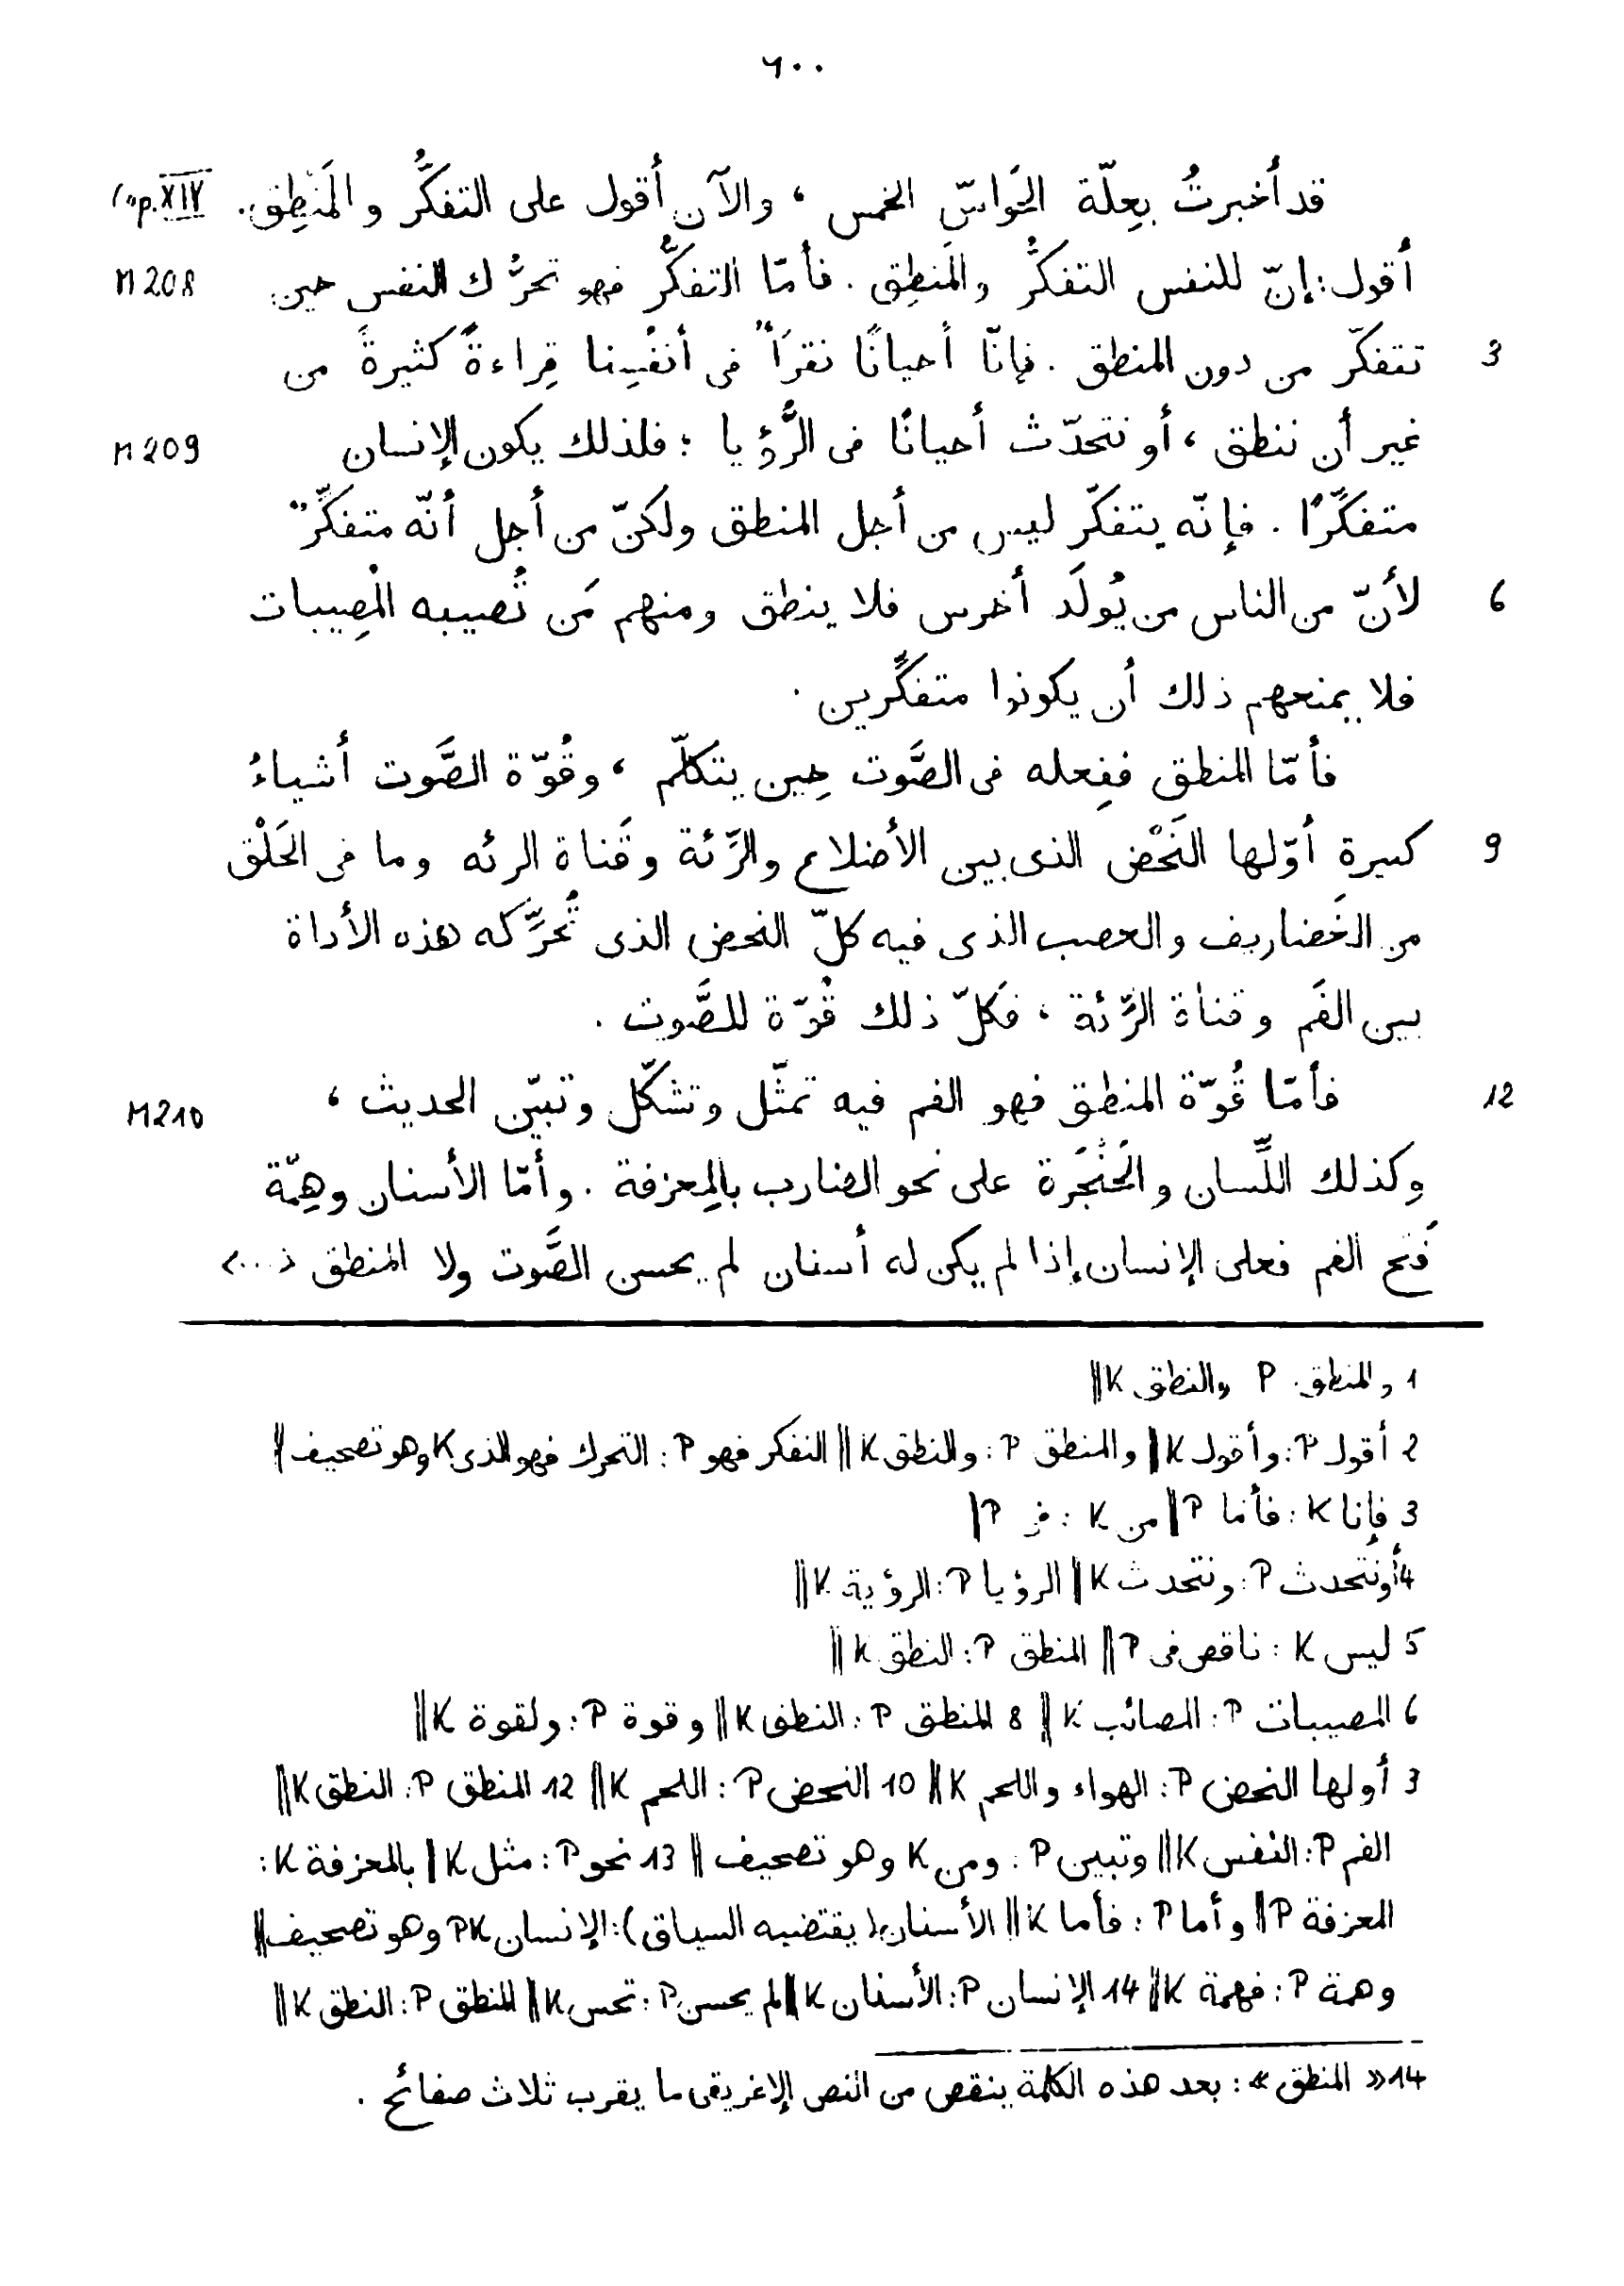 ٦٠٠
قد أخبرتُ بِعِلّة الحَواسّ الخمس ، والآن أقول على التفكُّر والمَنْطِق. Cap. XIV
أقول: إنّ للنفس التفكُّر والمَنطِق . فأمّا التفكُّر فهو تحرُّك النفس حين M 208
3 تتفكّر من دون المنطق . فإنّا أحيانًا نقرَأ في أنفُسِنا قِراءةً كثيرةً من
غير أن ننطق ، أو نتحدّث أحيانًا فى الرُّؤيا ؛ فلذلك يكون الإنسان M 209
متفكِّرًا . فإنّه يتفكّر ليس من أجل المنطق ولكنّ من أجل أنّه متفكِّر
6 لأنّ من الناس من يُولَد أخرس فلا ينطق ومنهم مَن تُصيبه المُصِيبات
فلا يمنعهم ذلك أن يكونوا متفكِّرين .
فأمّا المنطق ففِعله فى الصَّوت حِين يتكلّم ، وقُوّة الصَّوت أشياءُ
9 كبيرة أوّلها النَحْض الذى بين الأضلاع والرِّئة وقَناة الرئه وما فى الحَلْق
من الغَضاريف والعصب الذى فيه كلّ النحض الذى تُحرِّكه هذه الأداة
بين الفَم وقناة الرِّئة ، فكلّ ذلك قُوّة للصَّوت .
12 فأمّا قُوّة المنطق فهو الفم فيه تمثّل وتشكّل وتبيّن الحديث ، M 210
وكذلك اللِّسان والحَنْجَرة على نحو الضارب بالمِعزفة . وأمّا الأسنان وهِمّة
فَتح الفم فعلى الإنسان إذا لم يكن له أسنان لم يحسن الصَّوت ولا المنطق <...>
1 والمنطق P والنطق K ||
2 أقول P: وأقول K || والمنطق P: والنطق K || التفكر فهو P: التحرك فهو الذى K وهو تصحيف ||
3 فإنا K: فأما P || من K : فى P ||
4 أو نتحدث P: ونتحدث K || الرؤيا P: الرؤية K ||
5 ليس K : ناقص فى P || المنطق P: النطق K ||
6 المصيبات P: المصائب K || 8 المنطق P: النطق K || وقوة P: ولقوة K ||
3 أولها النحض P: الهواء واللحم K || 10 النحض P: اللحم K || 12 المنطق P: النطق K ||
الفم P: النفس K || وتبين P: ومن K وهو تصحيف || 13 نحو P: مثل K || بالمعزفة K:
المعزفة P || وأما P: فأما K || الأسنان (يقتضيه السياق): الإنسان PK وهو تصحيف ||
وهمة P: فهمة K || 14 الإنسان P: الأسنان K || لم يحسن P: تحس K || المنطق P: النطق K ||
14 «المنطق» : بعد هذه الكلمة ينقص من النص الإغريقى ما يقرب ثلاث صفائح .